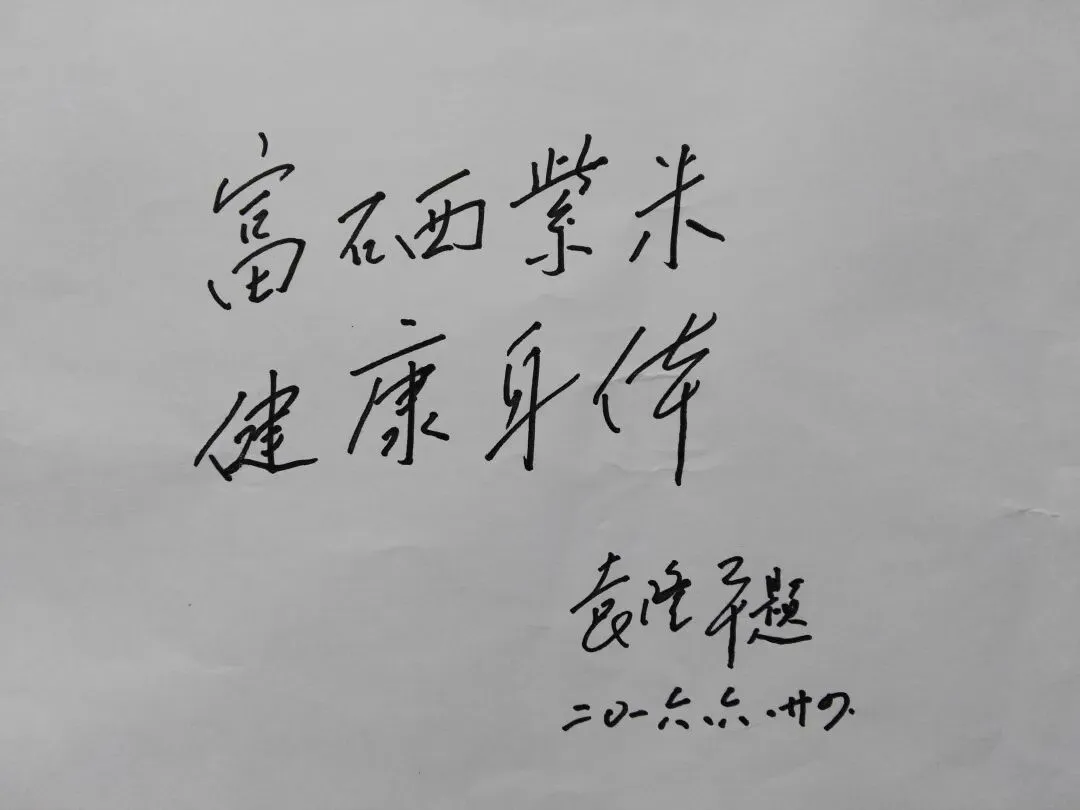 富硒紫米
健康身体
袁隆平题
二〇一六.六.廿四.